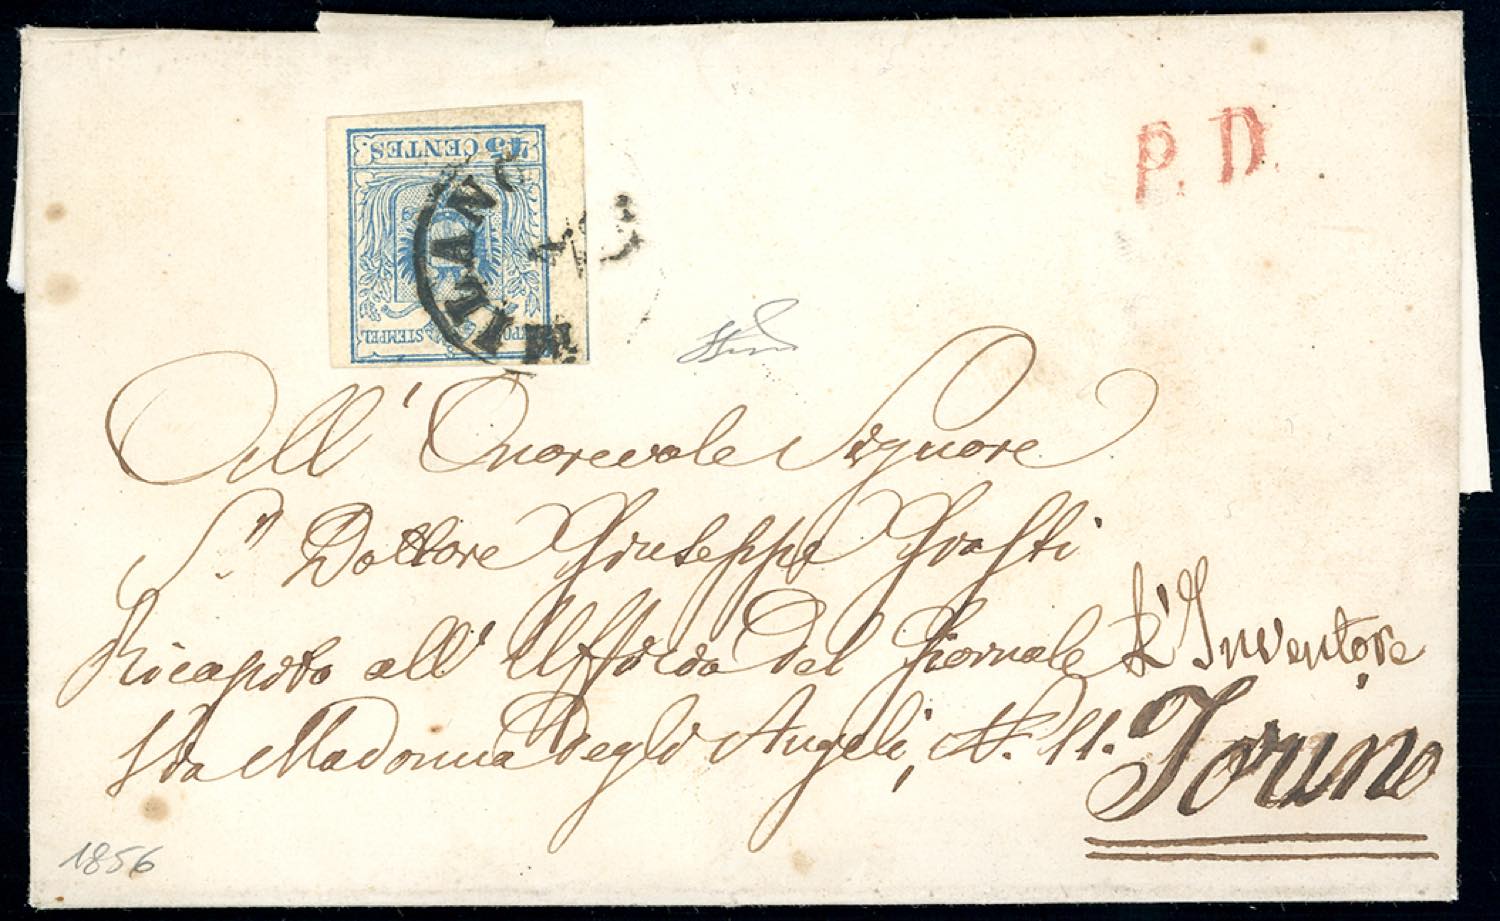 45 CENTES.
STEMPEL
MILANO
P. D.
All' Onorevole Signore
Sr. Dottore Giuseppe
Ricapito all' Uffizio del Giornale L'Inventore
Via Madonna degli Angeli, N. 11. Torino
1856